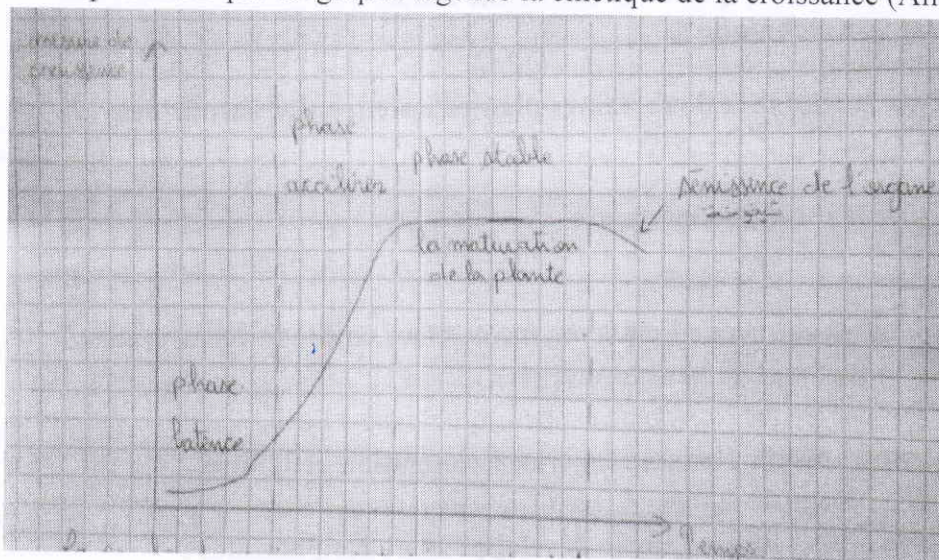 la cinétique de la croissance (An
mesure de
croissance
phase
accélirer
phase stable
sénissence de l'organe
la maturation
de la plante
phase
latence
Temps